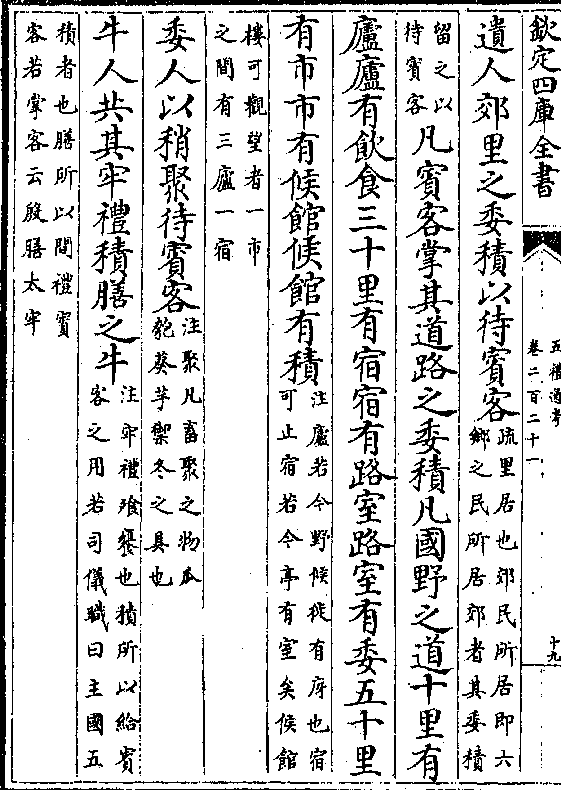 欽定四庫全書
五禮通考
卷二百二十一
十九
遺人郊里之委積以待賓客疏里居也郊民所居即六
鄉之民所居郊者其委積
留之以
待賓客凡賓客掌其道路之委積凡國野之道十里有
廬廬有飲食三十里有宿宿有路室路室有委五十里
有市市有候館候館有積注廬若今野候徙有庌也宿
可止宿若今亭有室矣候館
樓可觀望者一市
之間有三廬一宿
委人以稍聚待賓客注聚凡畜聚之物瓜
瓠葵芋禦冬之具也
牛人共其牢禮積膳之牛注牢禮飱饔也積所以給賓
客之用若司儀職曰主國五
積者也膳所以間禮賓
客若掌客云殷膳太牢